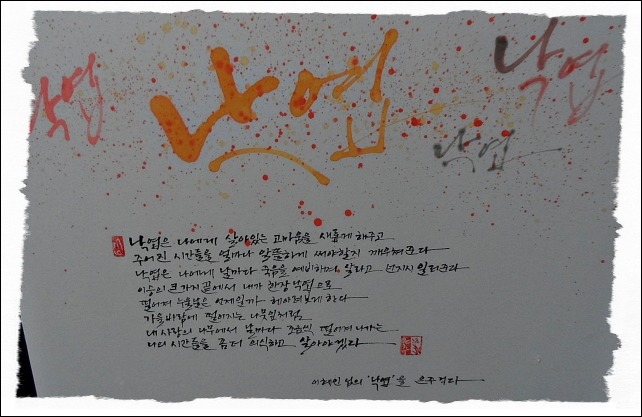 낙엽
낙엽
낙엽
낙엽
낙엽은 나에게 살아있는 고마움을 새롭게 해주고
주어진 시간들을 얼마나 알뜰하게 써야할지 깨우쳐준다
낙엽은 나에게 날마다 죽음을 예비하며 살라고 넌지시 일러준다
이승의 큰가지 끝에서 내가 한장 낙엽으로
떨어져 누울날은 언제일까 헤아려보게 한다
가을바람에 떨어지는 나뭇잎처럼
내 사랑의 나무에서 날마다 조금씩 떨어져 나가는
나의 시간들을 좀더 의식하고 살아야겠다
이해인 님의 '낙엽'을 은주 적다